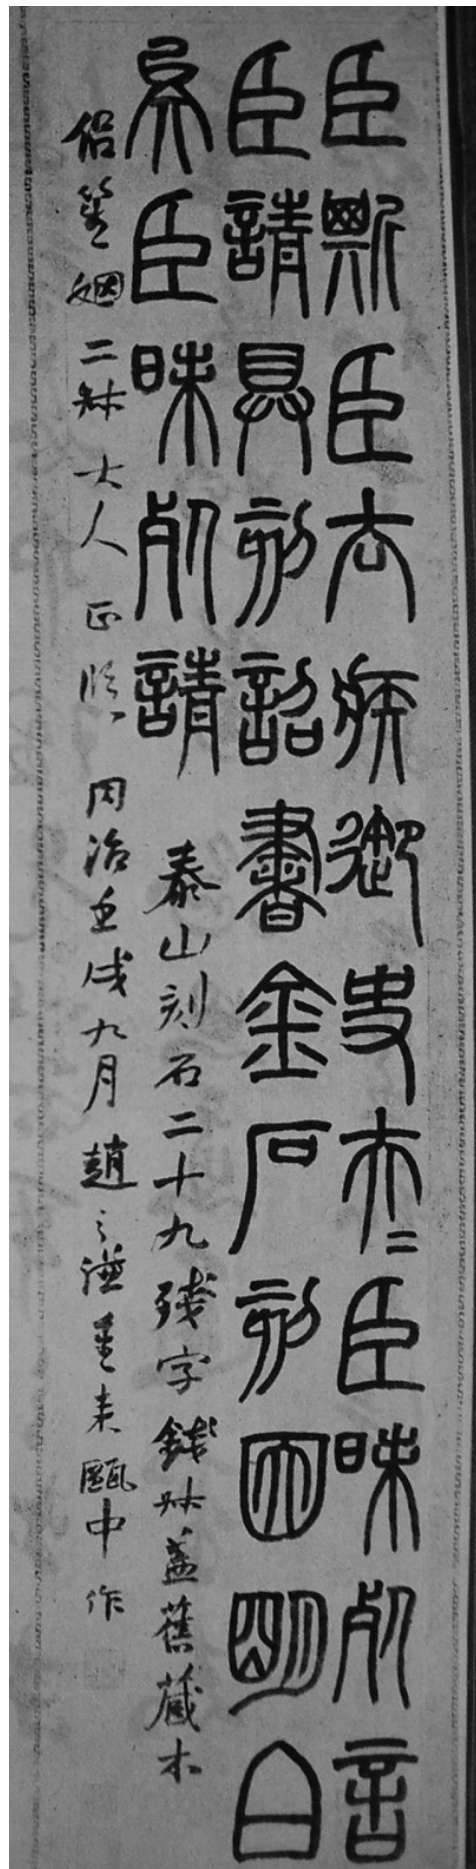 臣斯臣去疾御史夫二臣昧死言
臣請具刻詔書金石刻因明白
矣臣昧死請
泰山刻石二十九殘字錢尗蓋舊藏本
笙姻二叔大人正 同治壬戌九月趙之謙重來甌中作